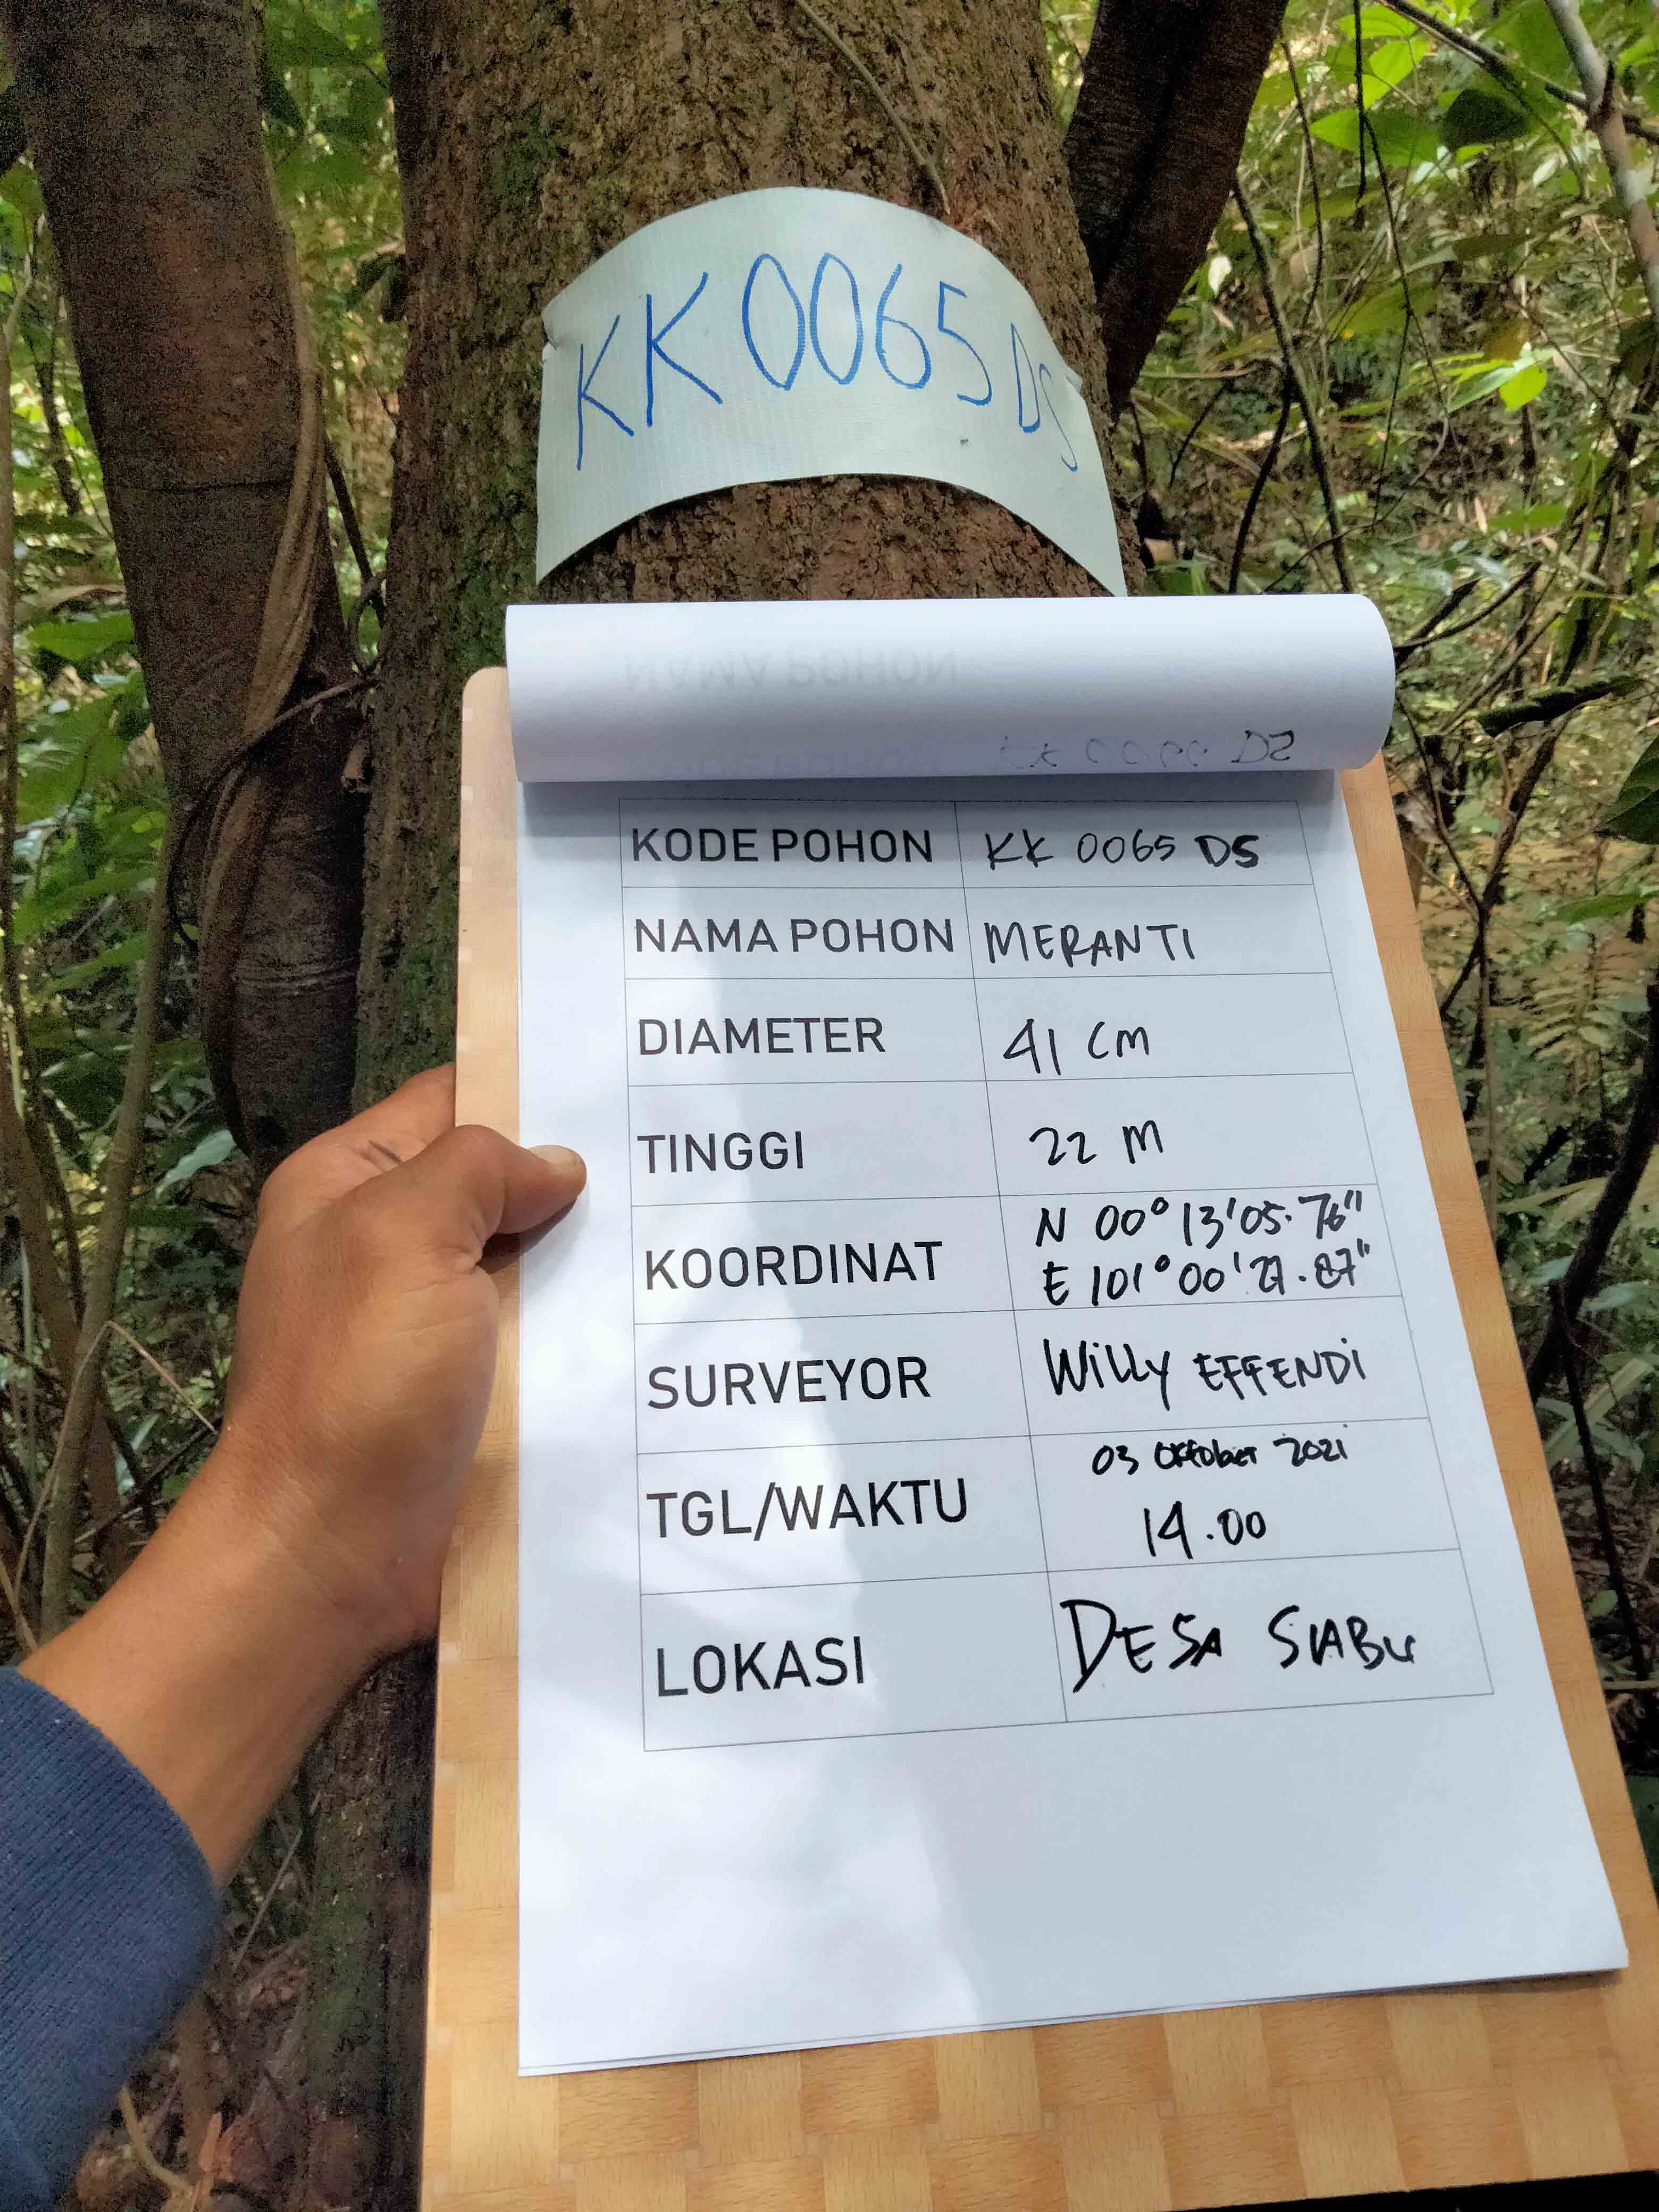 KK 0065 DS
NAMA POHON
KODE POHON KK 0065 DS
NAMA POHON MERANTI
DIAMETER 41 cm
TINGGI 22 M
KOORDINAT N 00° 13' 05.76"
E 101° 00' 27.87"
SURVEYOR Willy EFFENDI
TGL/WAKTU 03 Oktober 2021
14.00
LOKASI DESA SIABU